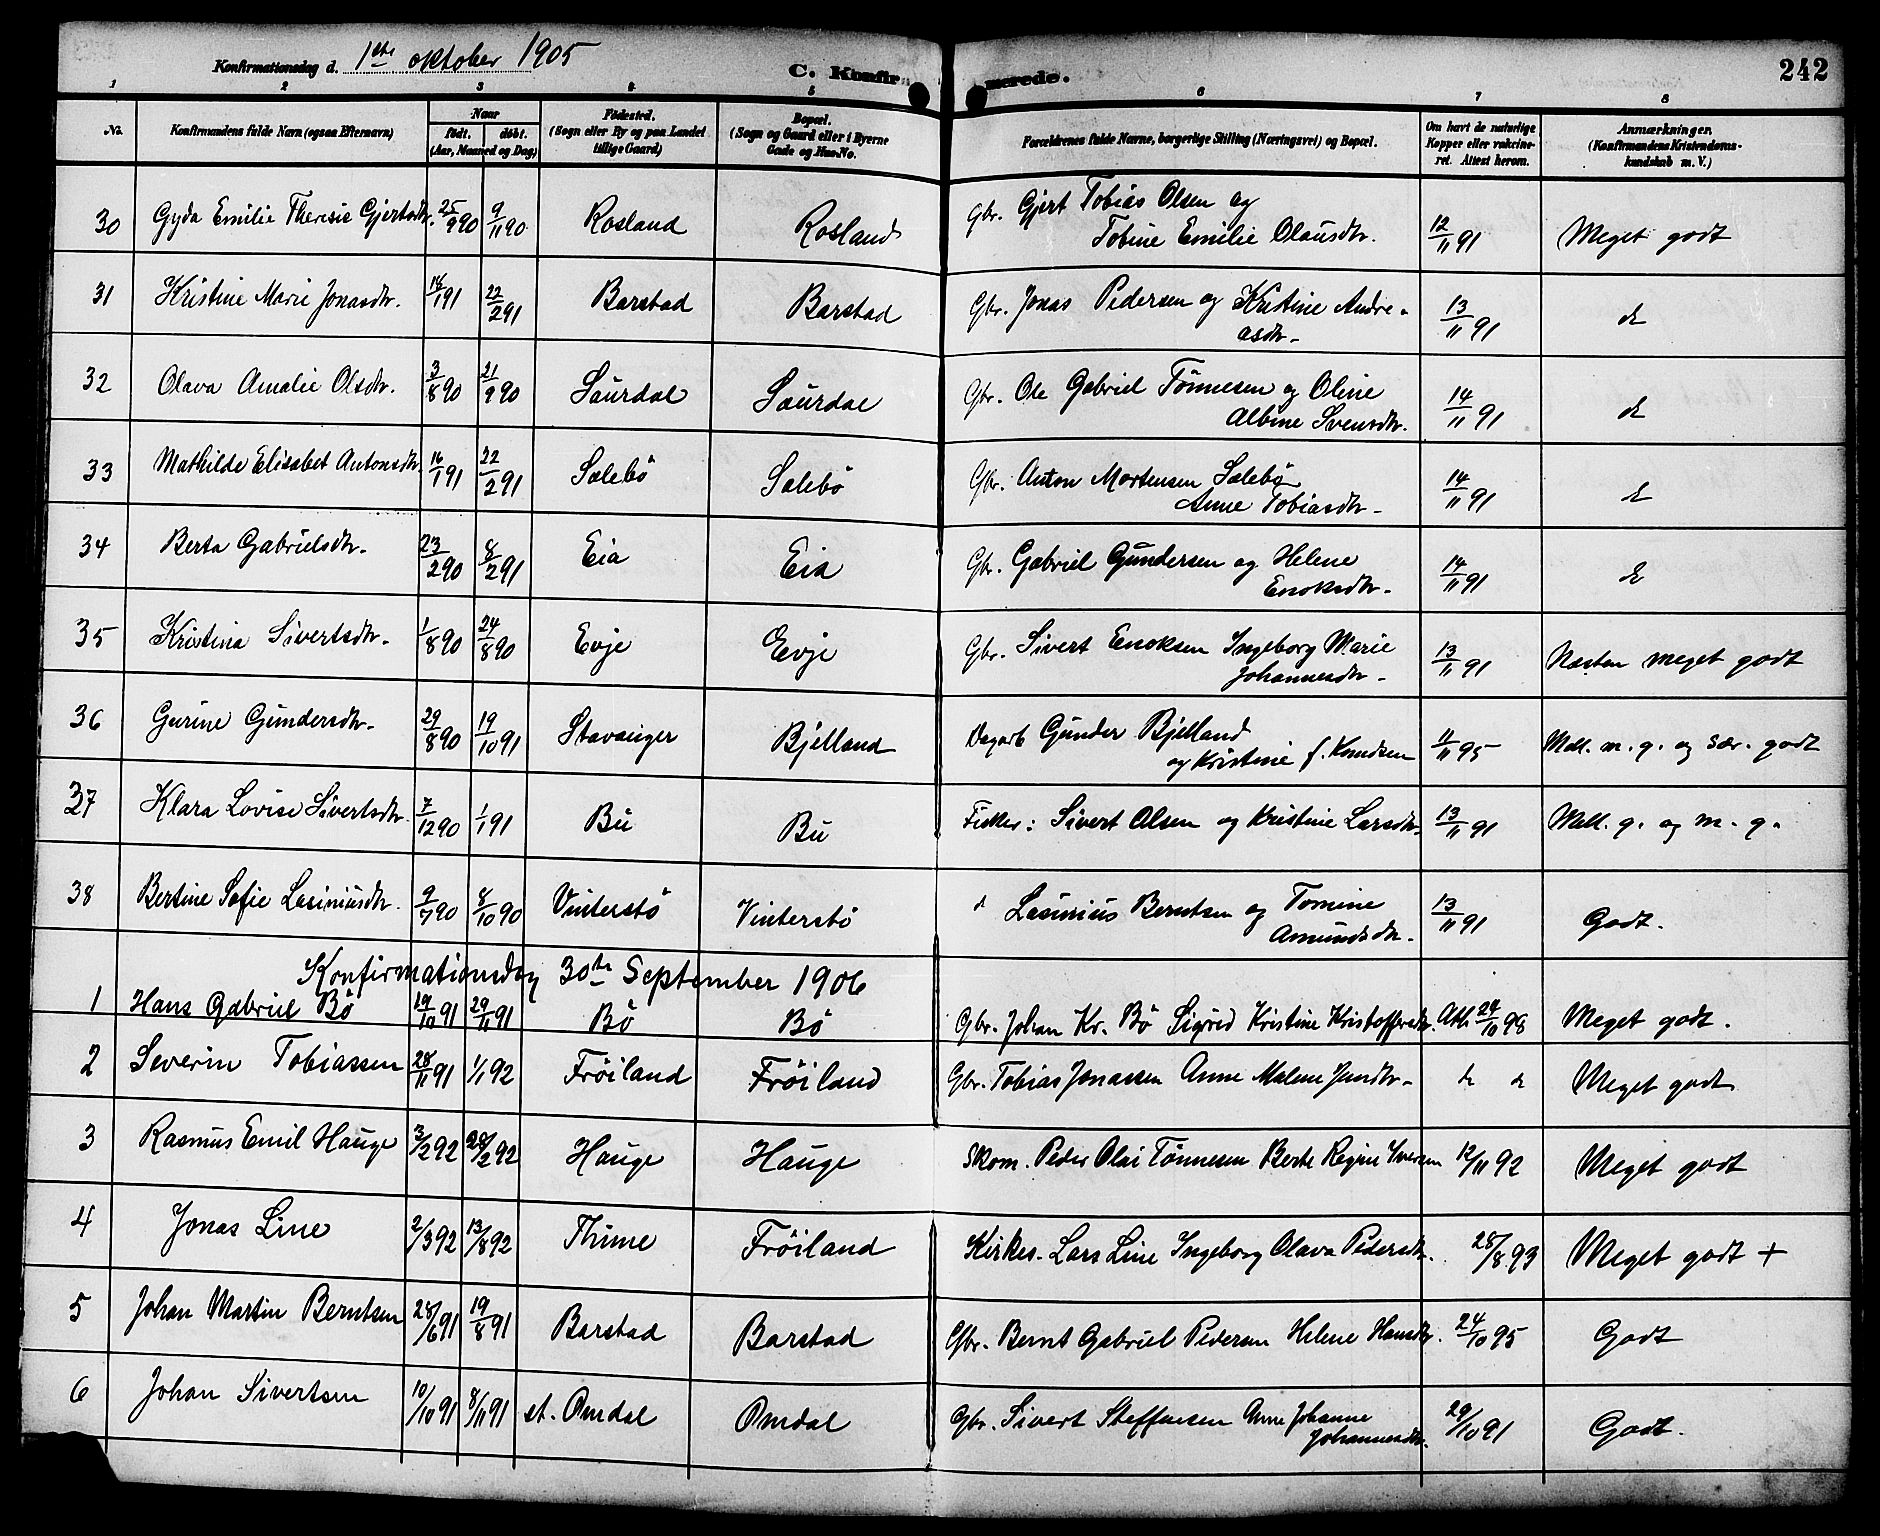 Konfirmationsdag d. 1ste oktober 1905 C. Konfir merede. 242
1 2 3 4 5 6 7 8
No. Konfirmandens fulde Navn (ogsaa Efternavn) Naar født. døbt. (Aar, Maaned og Dag) Fødested. (Sogn eller By og paa Landet tillige Gaard) Bopæl. (Sogn og Gaard eller i Byerne Gade og Hus-No. Forældrenes fulde Navne, borgerlige Stilling (Næringsvei) og Bopæl. Om havt de naturlige Kopper eller vakcineret. Attest herom. Anmærkninger. (Konfirmandens Kristendomskundskab m. V.)
30 Gyda Emilie Theresie Gjertsdtr. 25/9 90 9/11 90 Rosland Rosland Gbr. Gjert Tobias Olsen og Tobine Emilie Olausdtr. 12/11 91 Meget godt
31 Kristine Marie Jonasdtr. 14/1 91 22/2 91 Barstad Barstad Gbr. Jonas Pedersen og Kristine Andreasdtr. 13/11 91 d
32 Olava Amalie Olsdtr. 3/8 90 21/9 90 Saurdal Saurdal Gbr. Ole Gabriel Tønnesen og Oline Albine Svensdtr. 14/11 91 d
33 Mathilde Elisabet Antonsdtr. 16/1 91 22/2 91 Salebø Salebø Gbr. Anton Mortensen Salebø Anne Tobiasdtr. 14/11 91 d
34 Berta Gabrielsdtr. 23/2 90 8/2 91 Eia Eia Gbr. Gabriel Gundersen og Helene Enoksdtr. 14/11 91 d
35 Kristina Sivertsdtr. 1/8 90 24/8 90 Evje Evje Gbr. Sivert Enoksen Ingeborg Marie Johannesdtr. 13/11 91 Næsten meget godt
36 Gurine Gundersdtr. 29/8 90 19/10 91 Stavanger Bjelland Dagarb Gunder Bjelland og Kristine f. Knudsen 11/11 95 Mell. m. g. og sær. godt
37 Klara Lovise Sivertsdtr. 7/12 90 1/1 91 Bu Bu Fisker: Sivert Olsen og Kristine Larsdtr. 13/11 91 Mell. g. og m. g.
38 Bertine Sofie Lasiniusdtr. 9/7 90 8/10 90 Vinterstø Vinterstø d Lasinius Berntsen og Tomine Amundsdtr. 13/11 91 Godt.
Konfirmationsdag 30te September 1906
1 Hans Gabriel Bø 19/10 91 29/11 91 Bø Bø Gbr. Johan Kr. Bø Sigrid Kristine Kristoffersdtr. Att. 24/10 98 Meget godt.
2 Severin Tobiassen 28/11 91 1/1 92 Frøiland Frøiland Gbr. Tobias Jonassen Anne Malene d d Meget godt
3 Rasmus Emil Hauge 3/2 92 28/2 92 Hauge Hauge Skom. Peder Olai Tønnesen Berte Regine Iversen 12/11 92 Meget godt
4 Jonas Line 2/3 92 13/8 92 Thime Frøiland Kirkes. Lars Line Ingeborg Olava Pedersdtr. 28/8 93 Meget godt +
5 Johan Martin Berntsen 28/6 91 19/8 91 Barstad Barstad Gbr. Bernt Gabriel Pedersen Helene Hansdtr. 24/10 95 Godt
6 Johan Sivertsen 10/10 91 8/11 91 st. Omdal Omdal Gbr. Sivert Steffensen Anne Johanne Johannesdtr. 29/10 91 Godt.